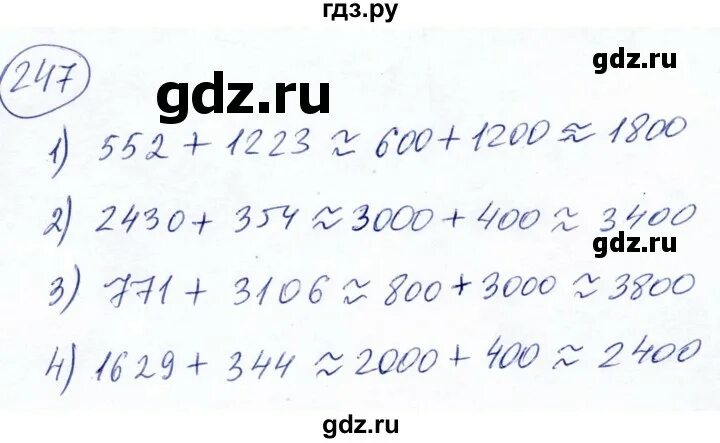 гдз.ру
247
gdz.ru
gdz.ru
1) 552 + 1223 ≈ 600 + 1200 ≈ 1800
2) 2430 + 354 ≈ 3000 + 400 ≈ 3400
gdz.ru
3) 771 + 3106 ≈ 800 + 3000 ≈ 3800
4) 1629 + 344 ≈ 2000 + 400 ≈ 2400
gdz.ru